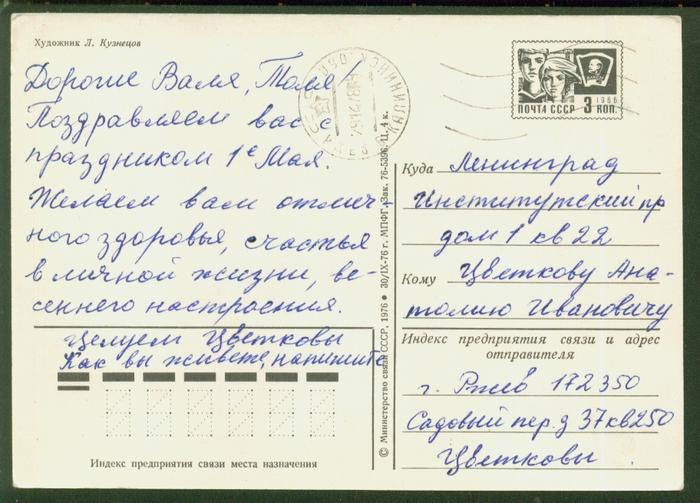 Художник Л. Кузнецов
Дорогие Валя, Толя!
Поздравляем вас с
праздником 1е Мая.
Желаем вам отлич-
ного здоровья, счастья
в личной жизни, ве-
сеннего настроения.
Целуем Цветковы
Как вы живете, напишите
Индекс предприятия связи места назначения
© Министерство связи СССР, 1976 • 30/IX-76 г. МПФГ. Зак. 76-5396. Ц. 4 к.
1966
ПОЧТА СССР 3 КОП
Куда Ленинград
Институтский пр
дом 1 кв 22
Кому Цветкову Ана-
толию Ивановичу
Индекс предприятия связи и адрес
отправителя
г. Ржев 172350
Садовый пер. д 37 кв 250
Цветковы.